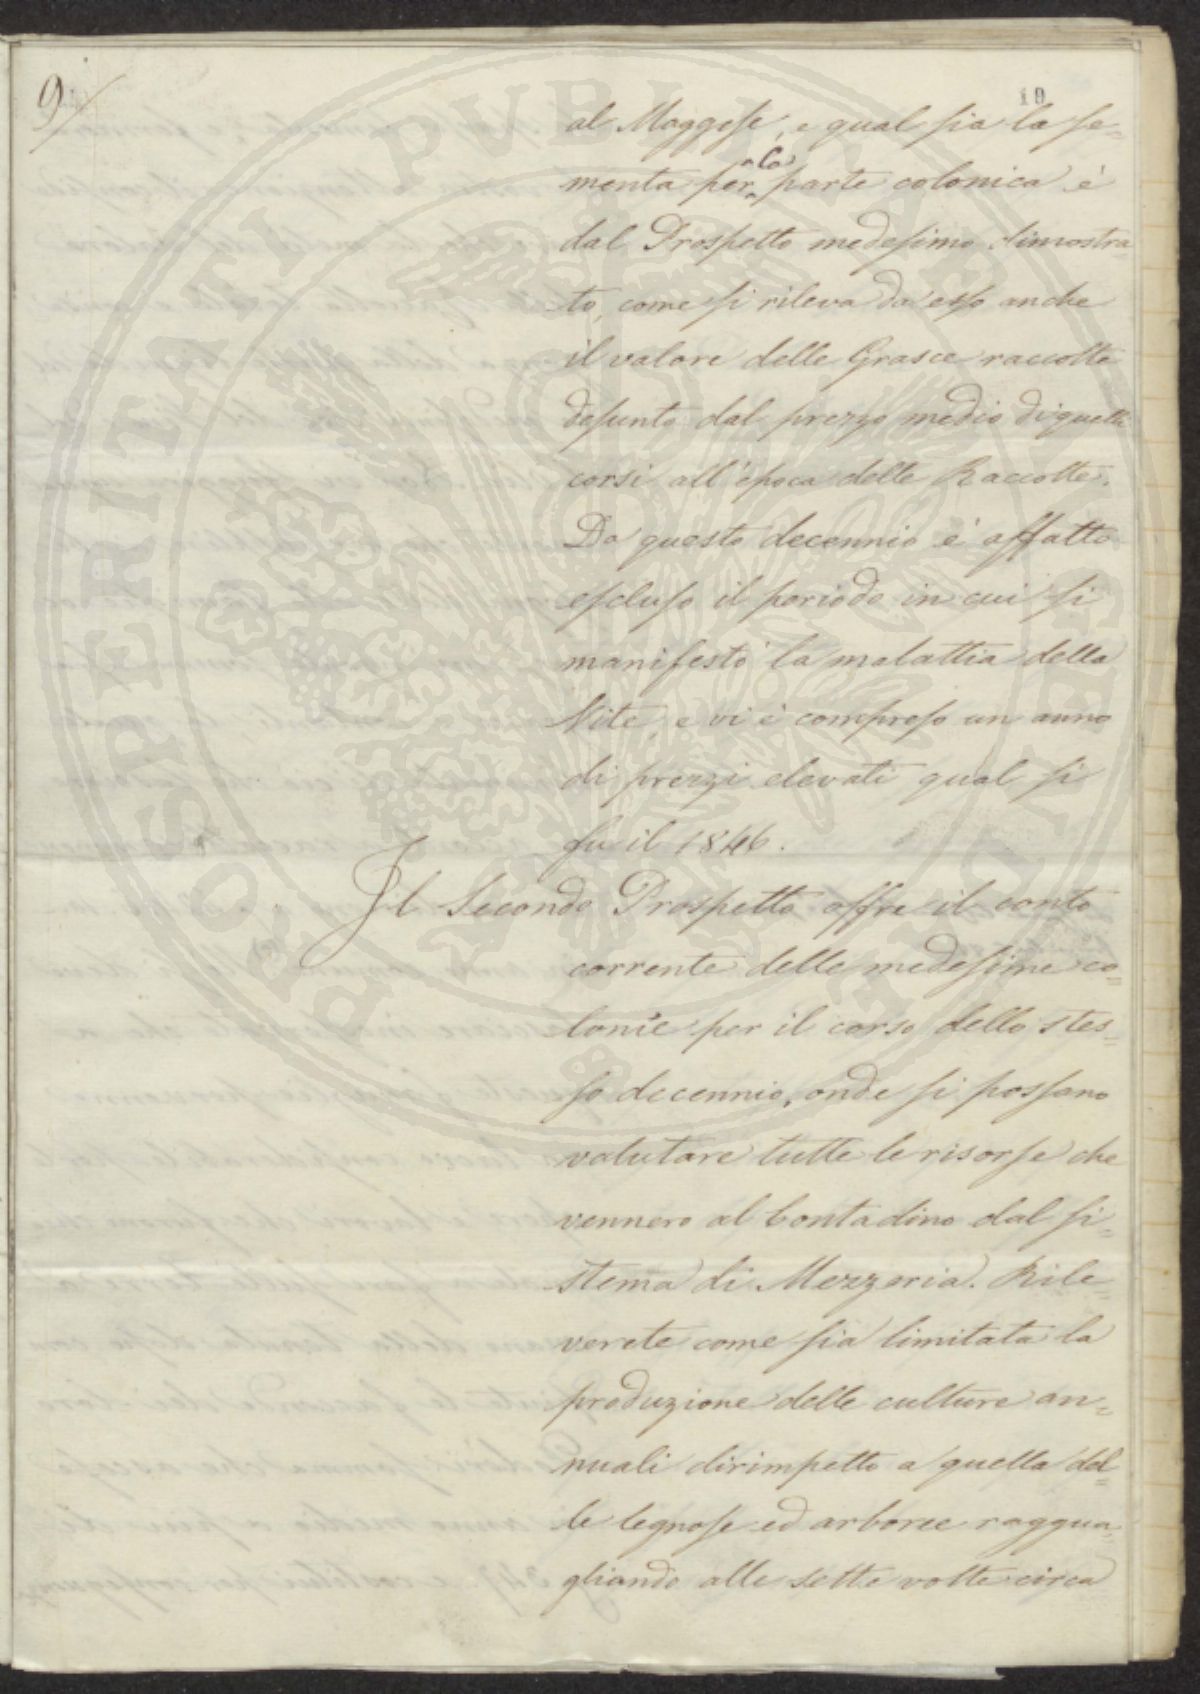 9/
10
al Maggese, e qual sia la se=
menta per la parte colonica è
dal Prospetto medesimo dimostra
to, come si rileva da esso anche
il valore delle Grasce raccolte
desunto dal prezzo medio di quelli
corsi all'epoca delle Raccolte.
Da questo decennio è affatto
escluso il periodo in cui si
manifestò la malattia della
Vite, e vi è compreso un anno
di prezzi elevati qual si
fu il 1846.
Il Secondo Prospetto offre il conto
corrente delle medesime co=
lonie per il corso dello stes=
so decennio, onde si possano
valutare tutte le risorse che
vennero al Contadino dal si=
stema di Mezzeria. Rile
verete come sia limitata la
produzione delle culture an=
nuali dirimpetto a quella del=
le legnose ed arboree raggua=
gliando alle sette volte circa
PROSPERITATI PVBLICAE AVGENDAE